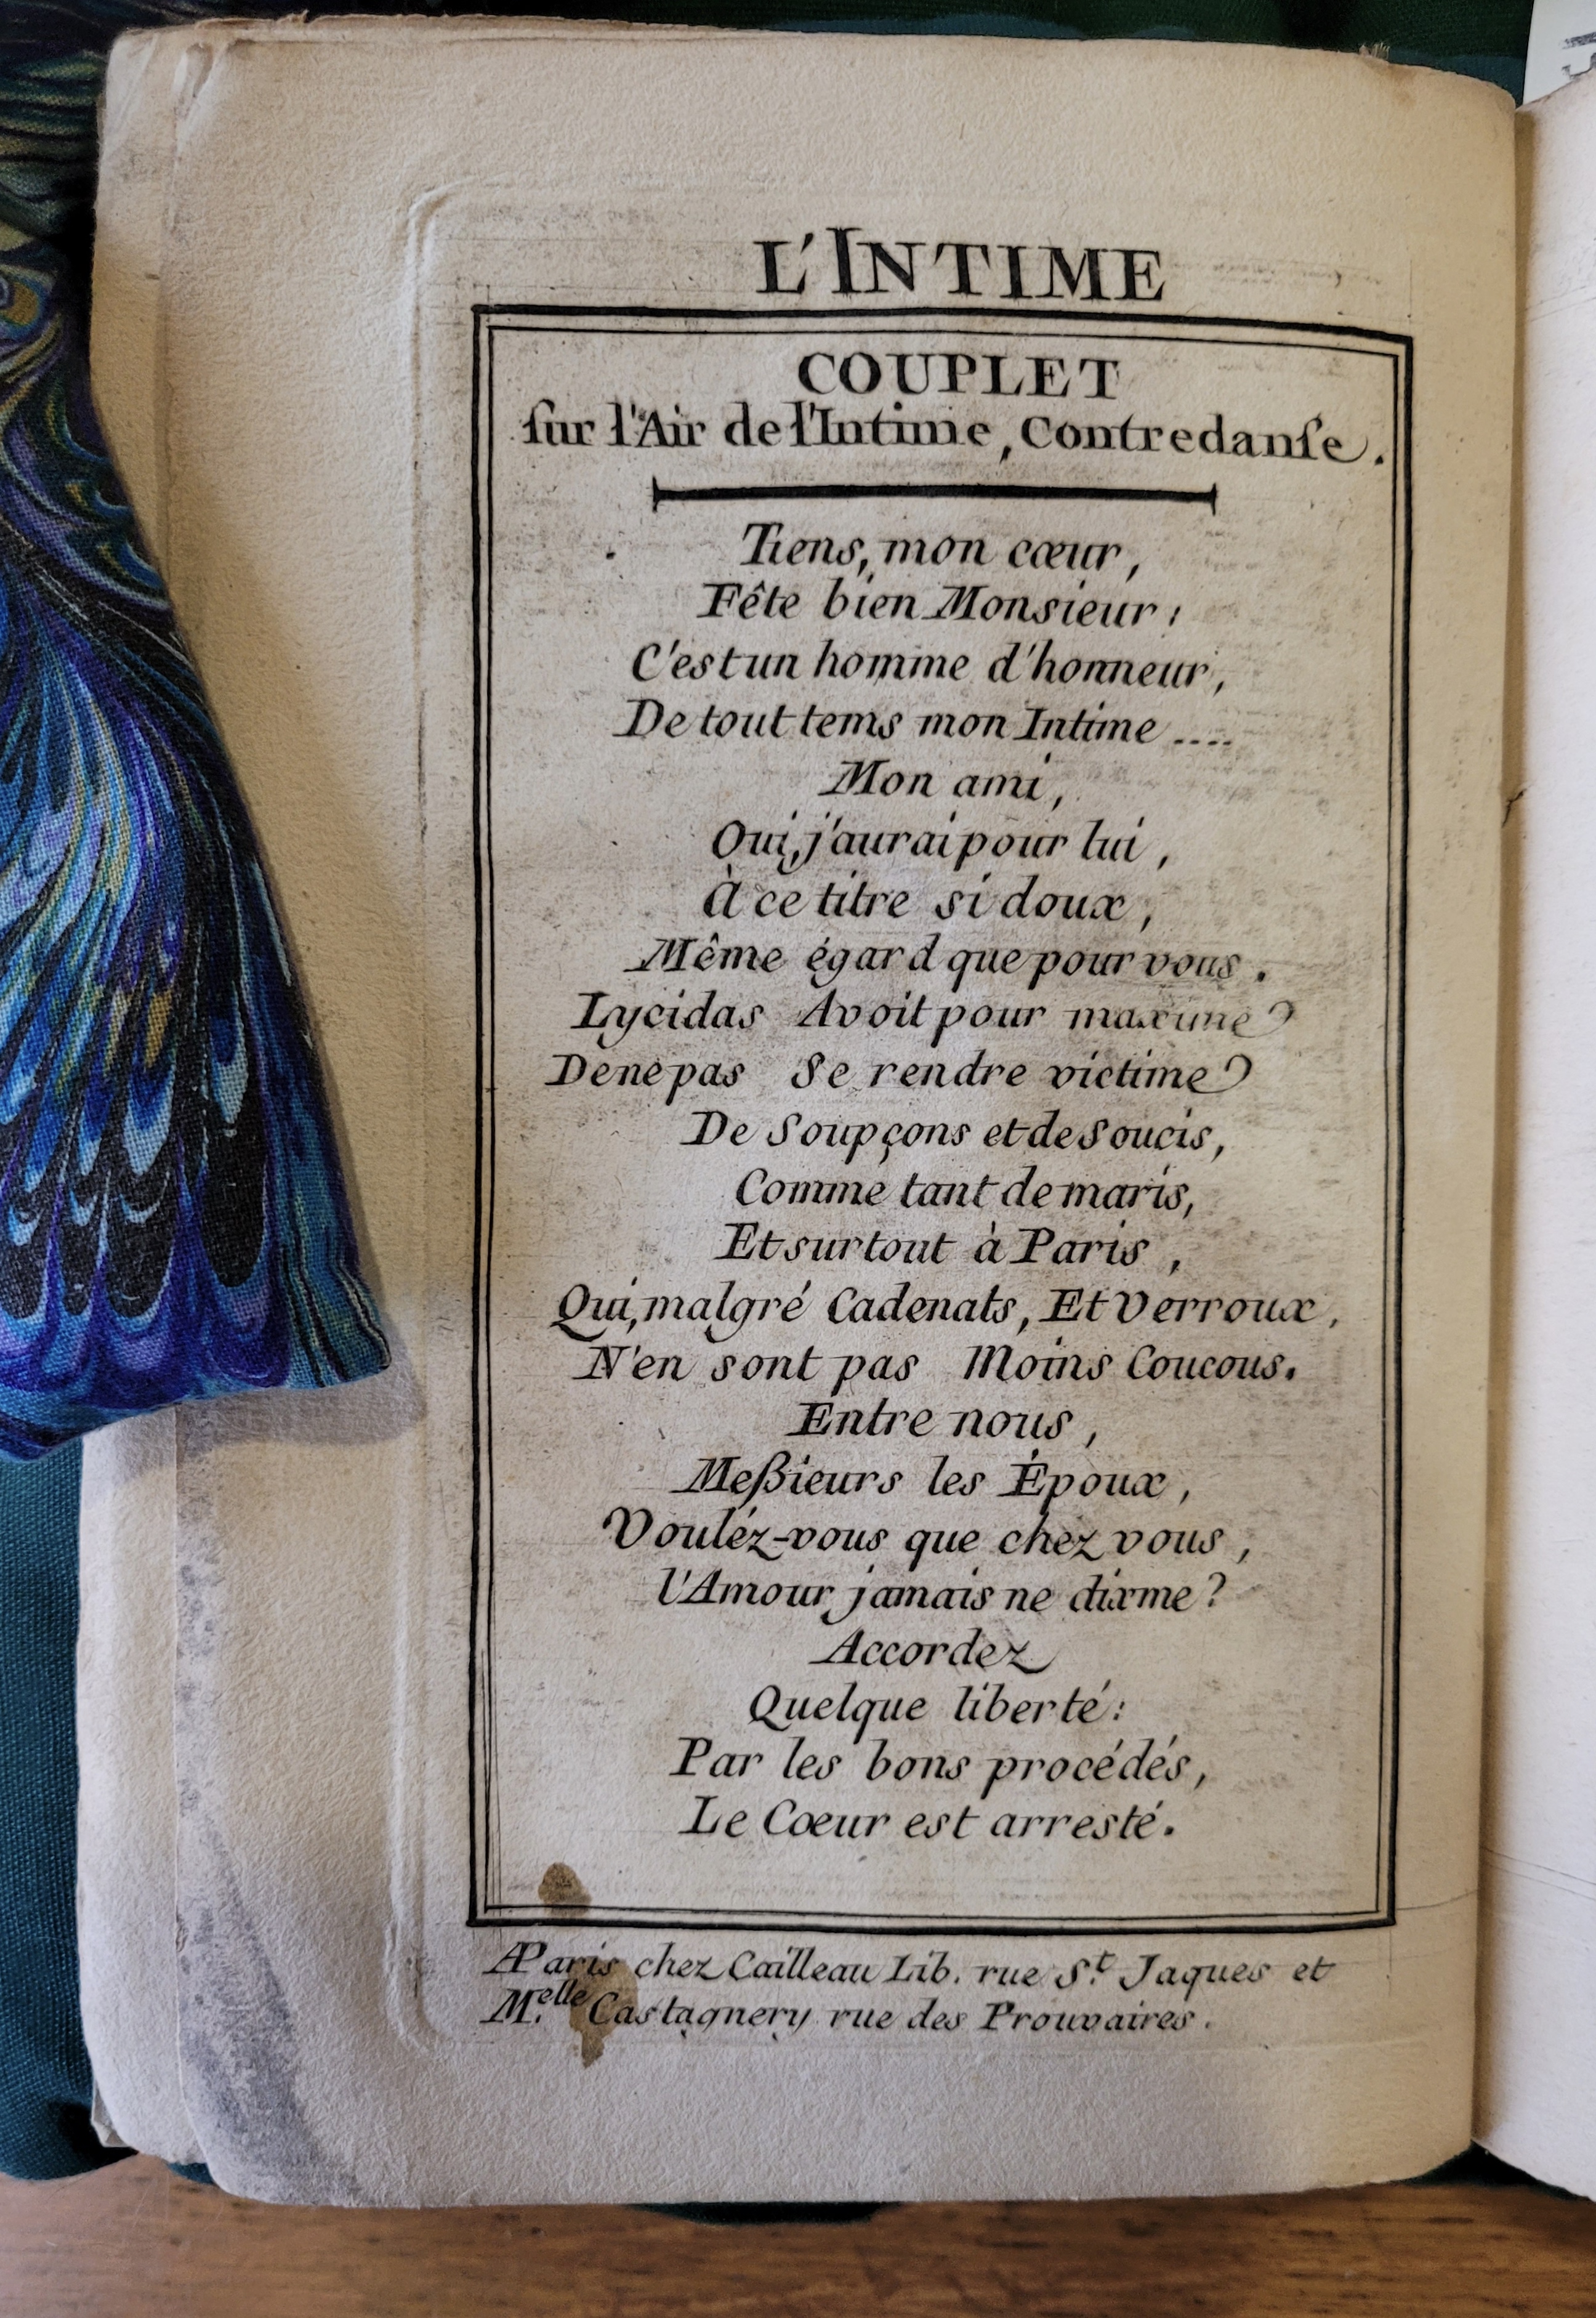 L'INTIME
COUPLET
sur l'Air de l'Intime, Contredanse.
Tiens, mon cœur,
Fête bien Monsieur;
C'est un homme d'honneur,
De tout tems mon Intime ....
Mon ami,
Oui, j'aurai pour lui,
À ce titre si doux,
Même égard que pour vous.
Lycidas Avoit pour maxime
De ne pas Se rendre victime
De Soupçons et de Soucis,
Comme tant de maris,
Et surtout à Paris,
Qui, malgré Cadenats, Et Verroux,
N'en sont pas Moins Coucous.
Entre nous,
Meßieurs les Époux,
Voulez-vous que chez vous,
l'Amour jamais ne dixme?
Accordez
Quelque liberté:
Par les bons procédés,
Le Cœur est arresté.
A Paris chez Cailleau Lib. rue St. Jaques et
Melle. Castagnery rue des Prouvaires.